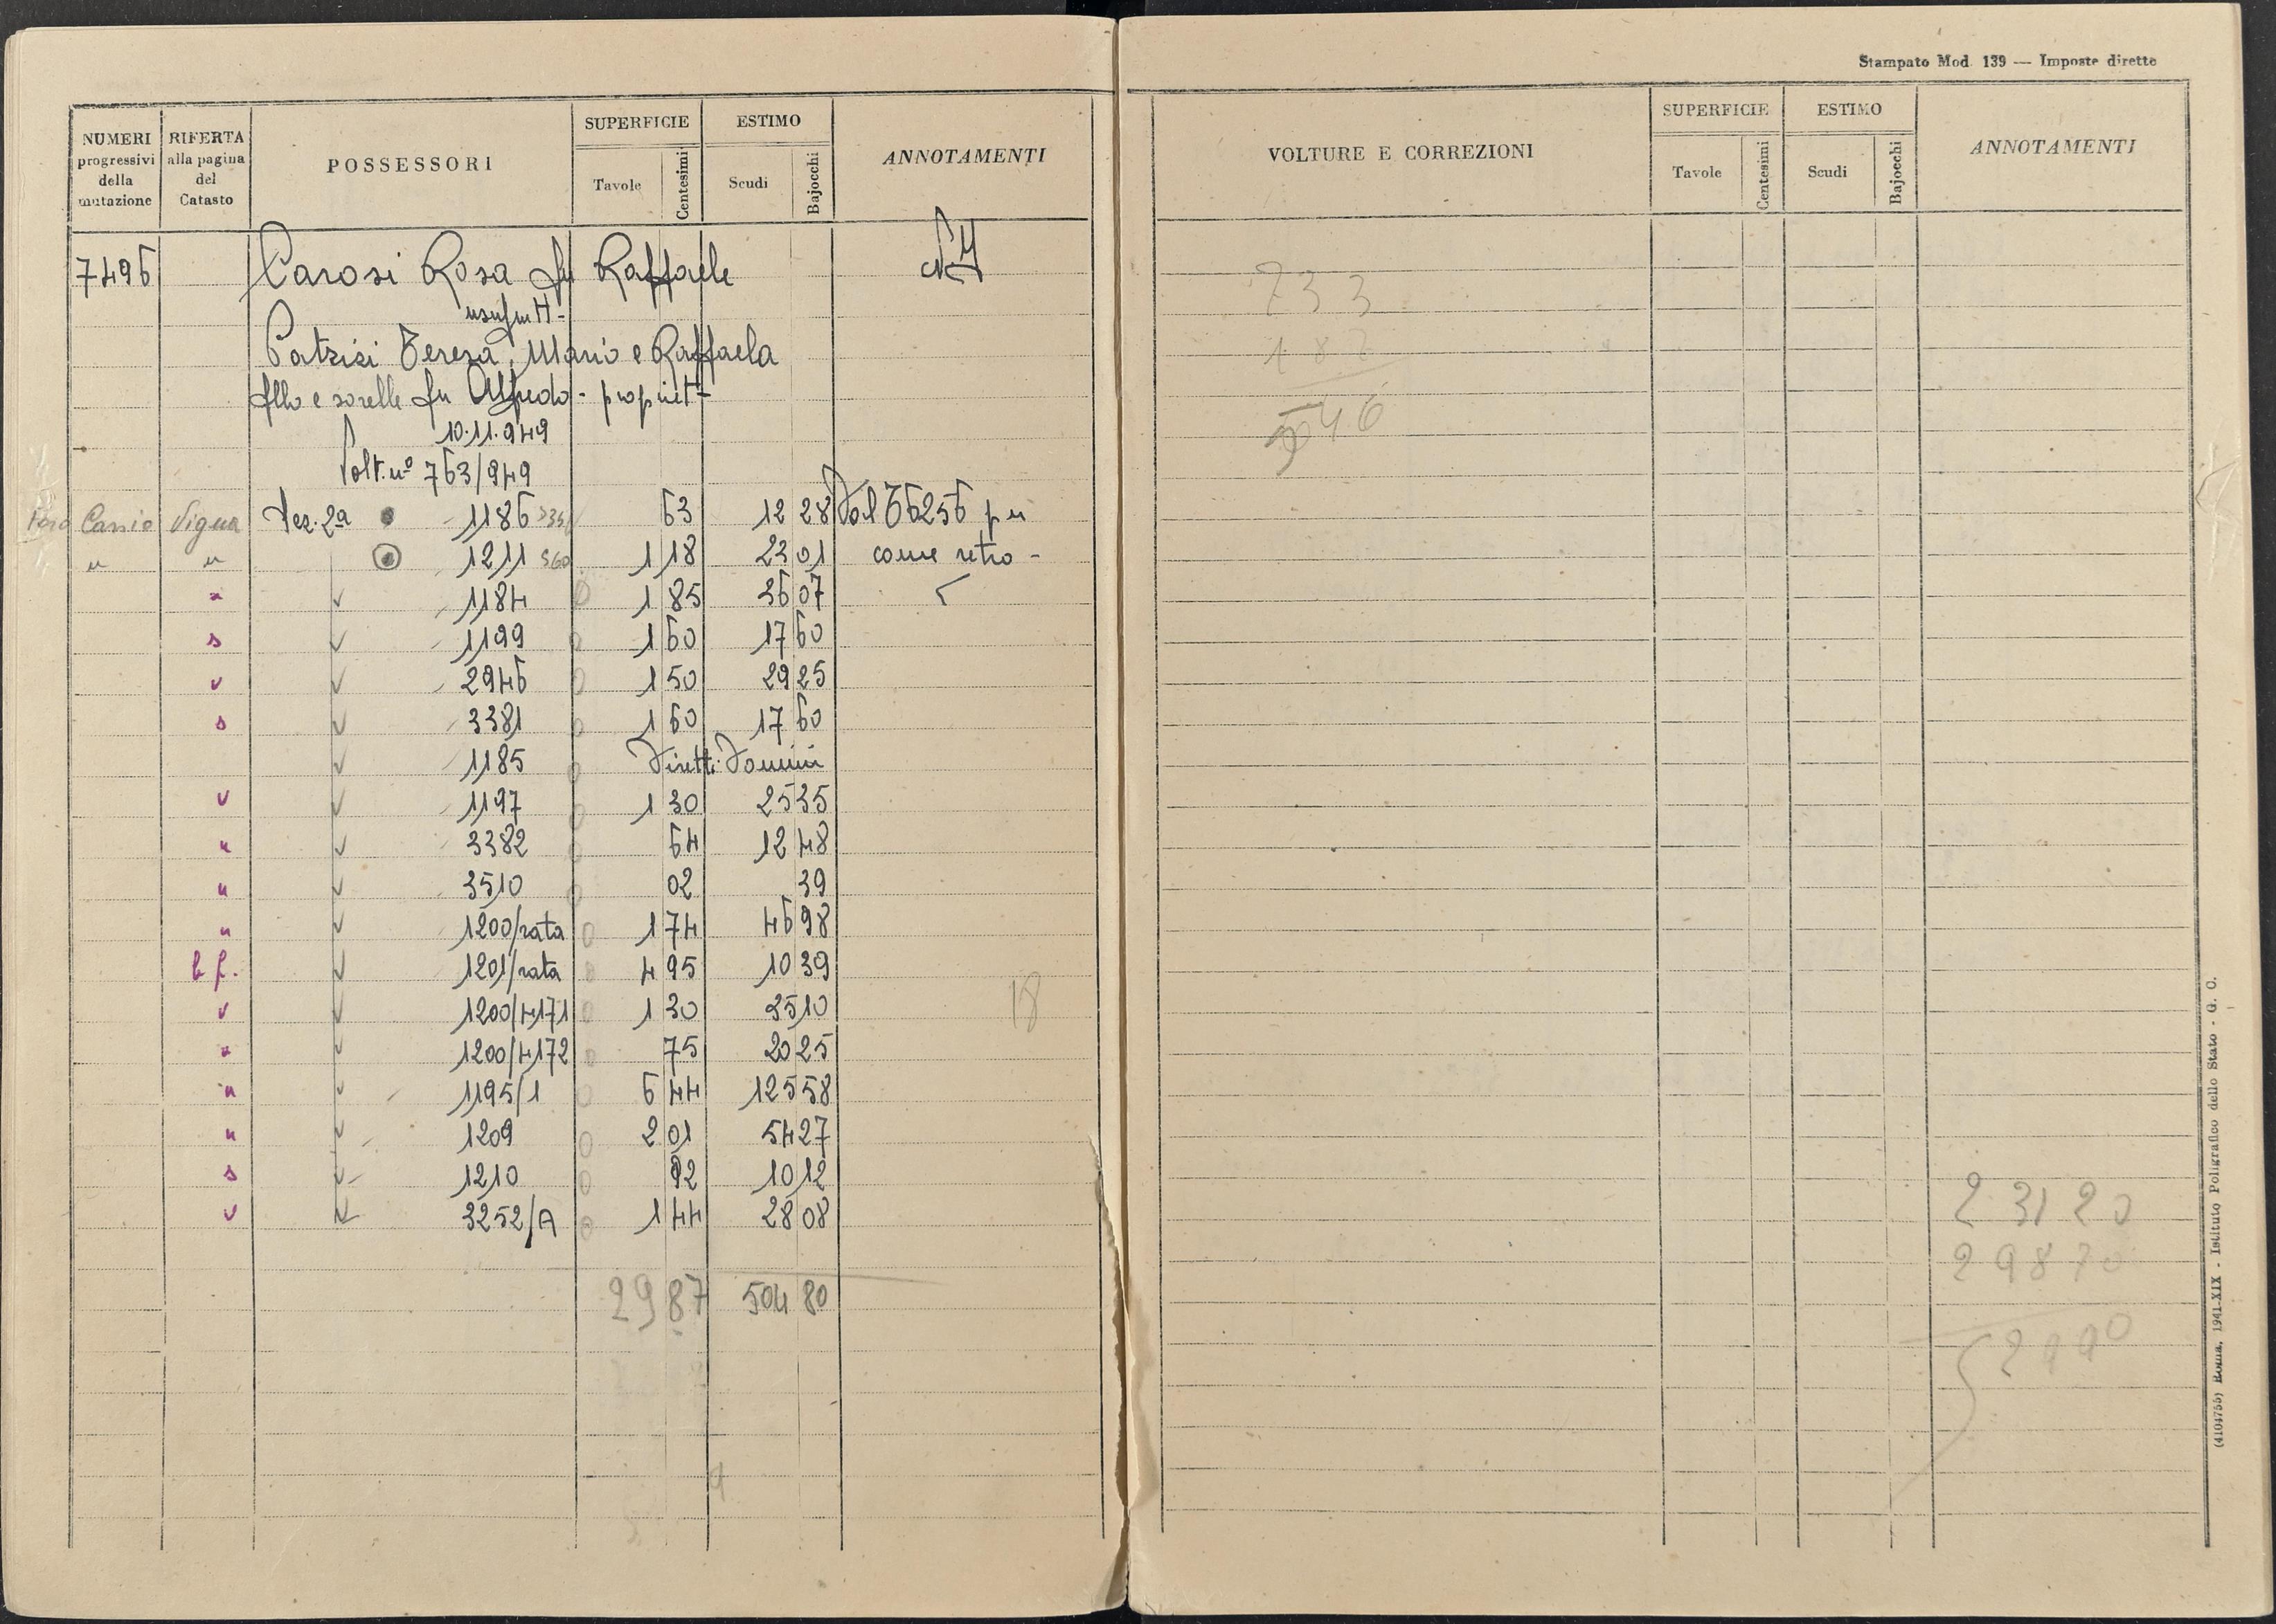 Stampato Mod. 139 — Imposte dirette
NUMERI progressivi della mutazione
RIFERTA alla pagina del Catasto
POSSESSORI
SUPERFICIE
Tavole
Centesimi
ESTIMO
Scudi
Bajocchi
ANNOTAMENTI
VOLTURE E CORREZIONI
SUPERFICIE
Tavole
Centesimi
ESTIMO
Scudi
Bajocchi
ANNOTAMENTI
7496 Carosi Rosa fu Raffaele
usufrutt-
Patrizi Teresa, Mario e Raffaela
fllo e sorelle fu Alfredo - propriet-
10.11.949
Volt. nº 763/949
Cassio Vigna Sez. 2ª 1186 63 12 28 Dal 6256 per
" " 1211 360 1 18 23 01 come retro -
" 1184 1 85 36 07
s 1199 1 60 17 60
v 2946 1 50 29 25
s 3381 1 60 17 60
1185 Diretti Domini
v 1197 1 30 25 35
" 3382 64 12 48
" 3510 02 39
" 1200/rata 1 74 46 98
b f. 1201/rata 4 95 10 39
v 1200/4171 1 30 35 10
" 1200/4172 75 20 25
" 1195/1 6 44 125 58
" 1209 2 01 54 27
s 1210 92 10 12
v 3252/A 1 44 28 08
29 87 504 80
18
733
187
546
23120
29870
(4104755) Roma, 1941-XIX - Istituto Poligrafico dello Stato - G. C.